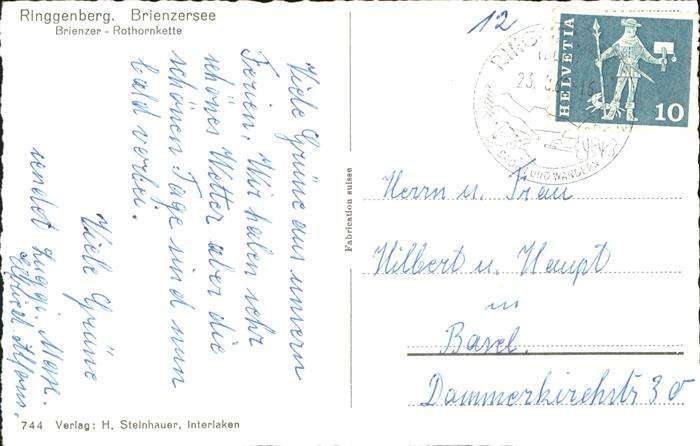 Ringgenberg. Brienzersee
Brienzer - Rothornkette
Viele Grüne aus unsern
Ferien. Wir haben sehr
schönes Wetter aber die
schönen Tage sind nun
bald vorbei.
Viele Grüne
sendet
744 Verlag: H. Steinhauer, Interlaken
Fabrication suisse
12
HELVETIA
10
23.
UND WANDERN
Herrn u. Frau
Hilbert u. Haupt
in
Basel.
Dammerkirchstr 30